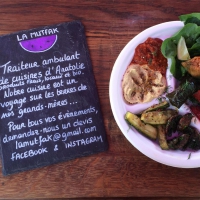 LA MUTFAK
Traiteur ambulant
de cuisines d'Anatolie
produits frais, locaux et bio,
Notre cuisine est un
voyage sur les terres de
mes grands-mères...
Pour tous vos événements,
demandez-nous un devis
lamutfak@gmail.com
FACEBOOK & INSTAGRAM